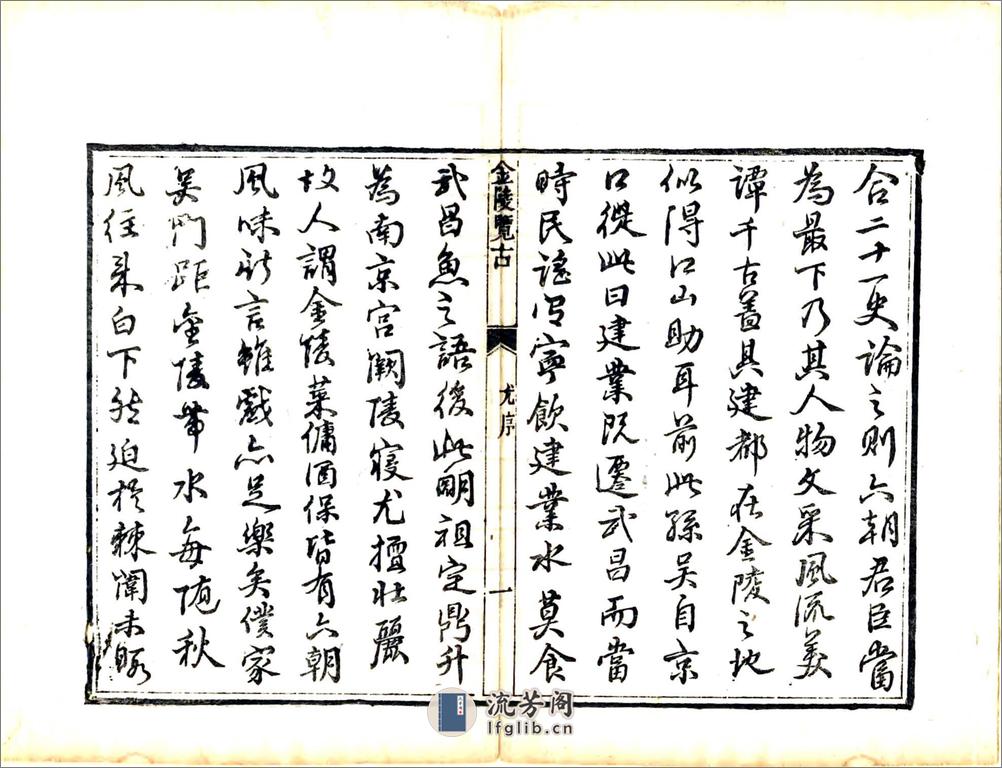 合二十一史論之則六朝君臣當
為最下乃其人物文采風流美
譚千古蓋其建都在金陵之地
似得江山助耳前此孫吳自京
口從此曰建業既遷武昌而當
時民謠有寧飲建業水莫食
金陵覽古
尤序
一
武昌魚之語後此明祖定鼎升
為南京宮闕陵寢尤擅壯麗
故人謂金陵菜傭酒保皆有六朝
風味斯言雖戲亦足樂矣僕家
吳門距金陵帶水每隨秋
風往來白下然迫於棘闈未暇
流芳阁
lfglib.cn